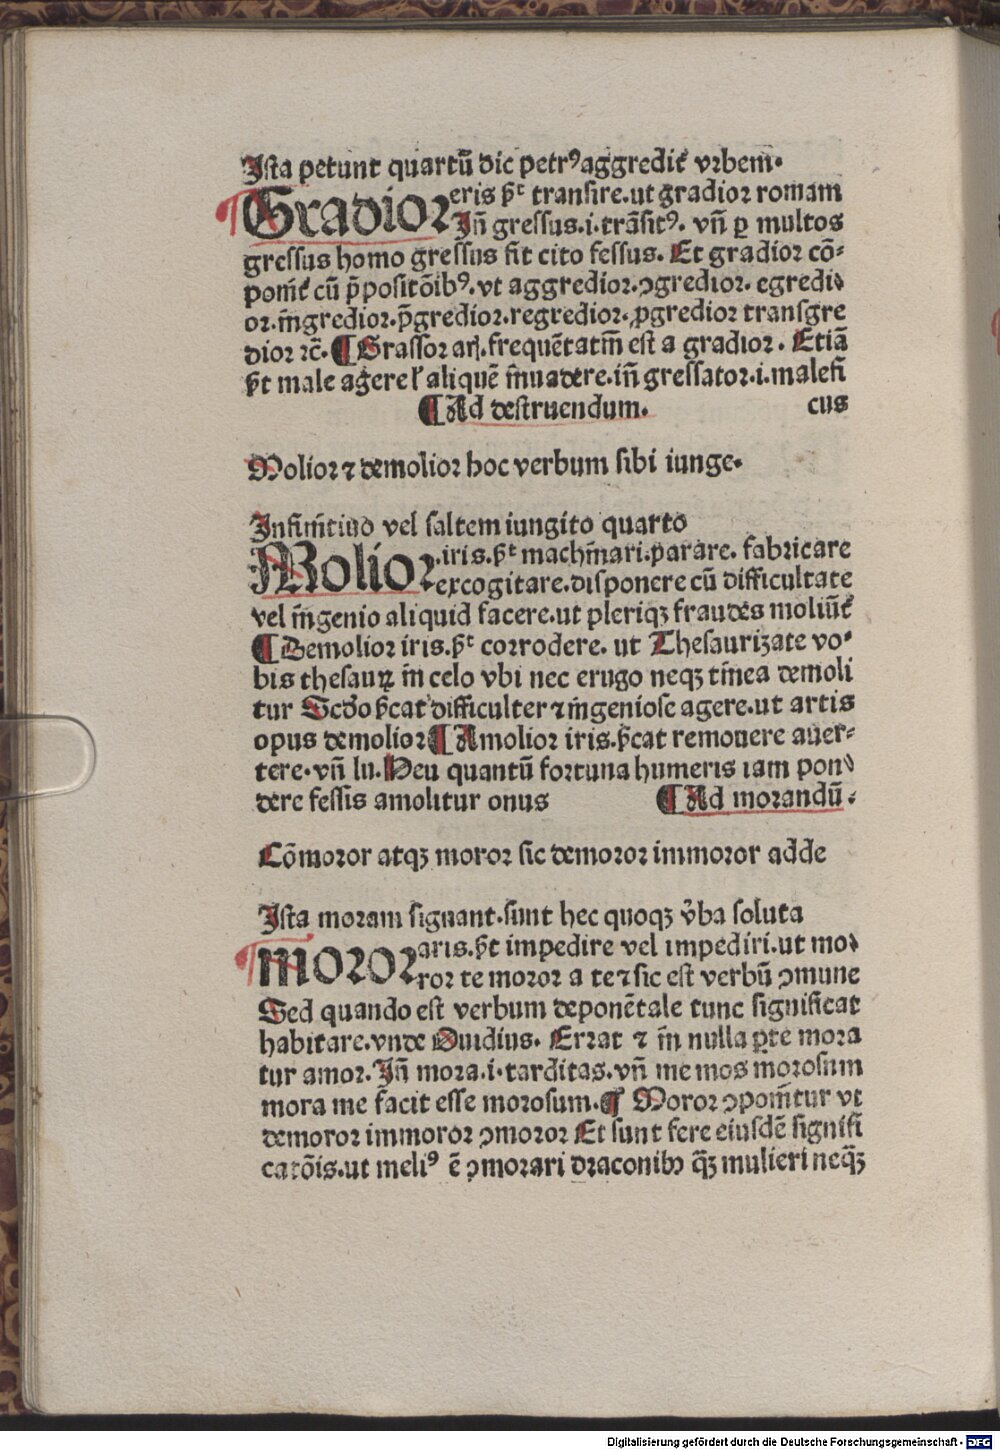 Ista petunt quartū dic petrꝰ aggredit᷑ vrbem.
¶ Gradior eris p̄t transire.ut gradior romam
Iñ gressus.i.trāsitꝰ. vñ ꝑ multos
gressus homo gressus fit cito fessus. Et gradior cō-
ponit᷑ cū p̄positōibꝰ.vt aggredior.ꝯgredior. egredi-
or.ingredior.p̄gredior.regredior.ꝓgredior transgre
dior ⁊c̄. ¶ Grassor aris.frequētatiū est a gradior. Etiā
p̄t male agere ł aliquē inuadere.iñ gressator.i.malefi
cus
¶ Ad destruendum.
Molior ⁊ demolior hoc verbum sibi iunge.
Infinitiuo vel saltem iungito quarto
Molior.iris.p̄t machinari.parare. fabricare
excogitare.disponere cū difficultate
vel ingenio aliquid facere.ut pleriqꝫ fraudes moliūt᷑
¶ Demolior iris.p̄t corrodere. ut Thesaurizate vo-
bis thesauꝝ in celo vbi nec erugo neqꝫ tinea demoli
tur Scd̄o p̄cat difficulter ⁊ ingeniose agere.ut artis
opus demolior ¶ Amolior iris.p̄cat remouere auer-
tere.vñ lu. Heu quantū fortuna humeris iam pon-
dere fessis amolitur onus
¶ Ad morandū.
Cōmoror atqꝫ moror sic demoror immoror adde
Ista moram signant.sunt hec quoqꝫ v̄ba soluta
¶ moror aris.p̄t impedire vel impediri.ut mo-
ror te moror a te ⁊ sic est verbū ꝯmune
Sed quando est verbum deponētale tunc significat
habitare.vnde Ouidius. Errat ⁊ in nulla ꝑte mora
tur amor. Iñ mora.i.tarditas.vñ me mos morosum
mora me facit esse morosum. ¶ Moror ꝯponitur vt
demoror immoror ꝯmoror Et sunt fere eiusdē signifi
catōis.ut meliꝰ ē ꝯmorari draconibꝫ q̄ꝫ mulieri neq̄ꝫ
Digitalisierung gefördert durch die Deutsche Forschungsgemeinschaft - DFG